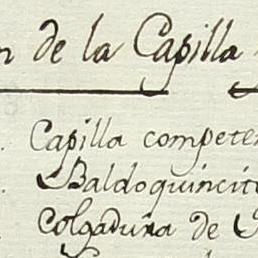 n de la Capilla
Capilla competen
Baldoquincito
Colgadura de